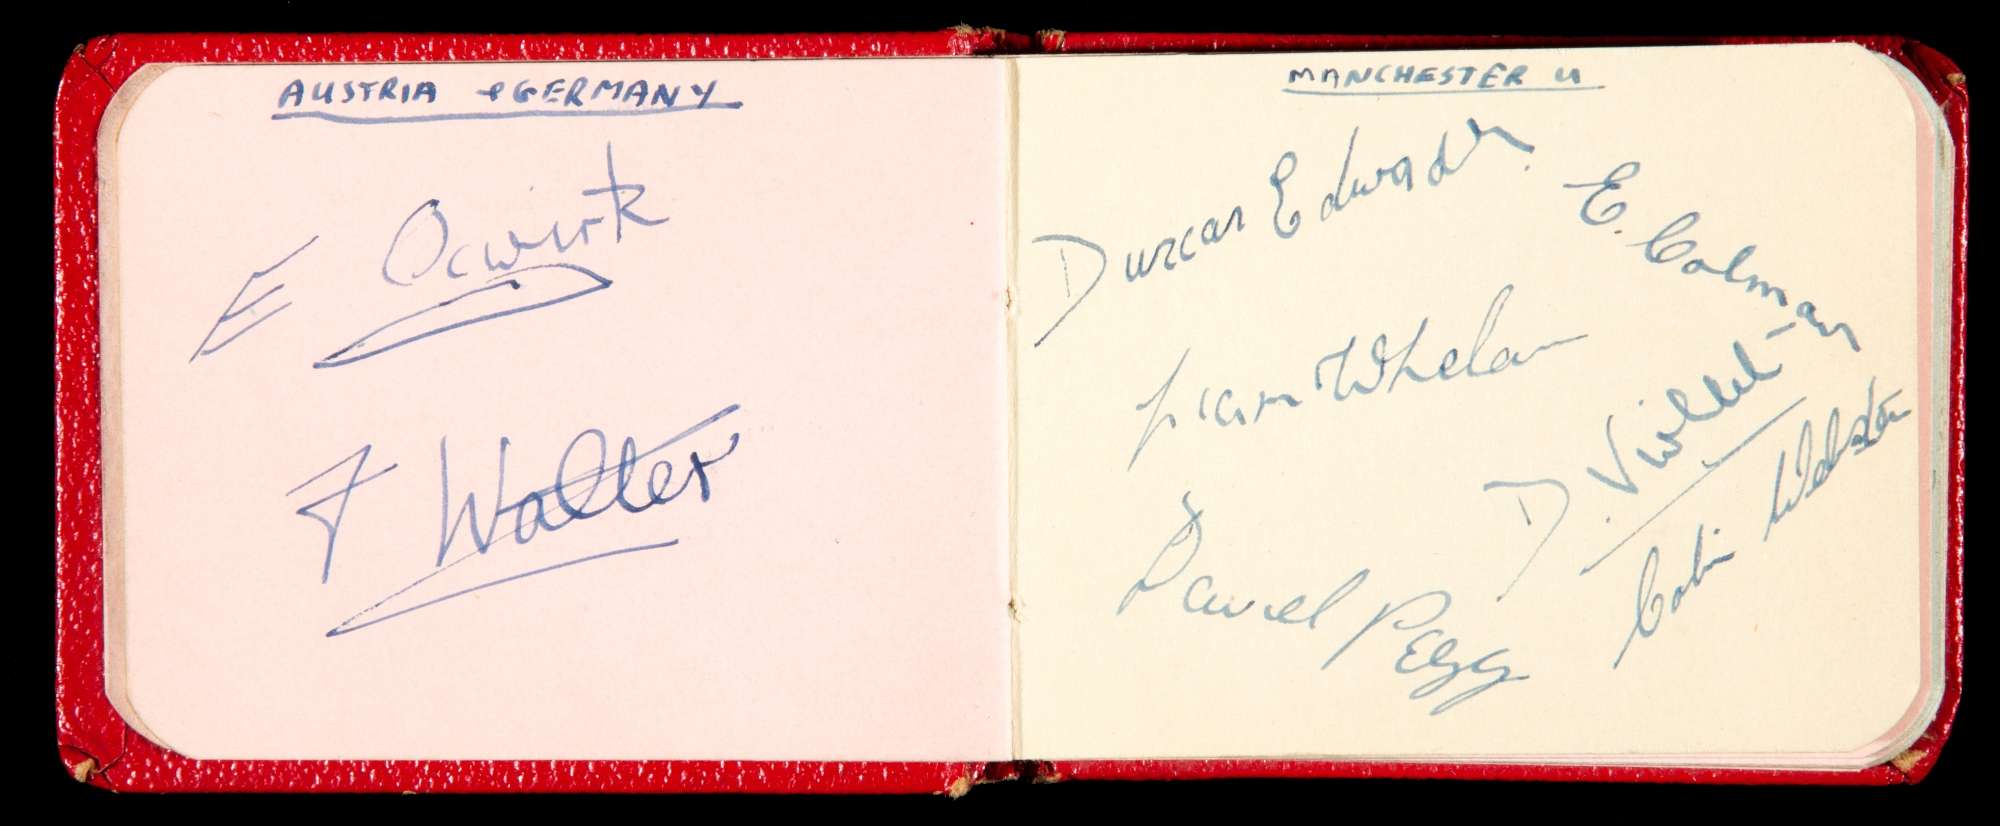 AUSTRIA & GERMANY
E Ocwirk
F Walter
MANCHESTER U
Duncan Edwards.
E. Colman
Liam Whelan
D. Viollet
David Pegg
Colin Webster